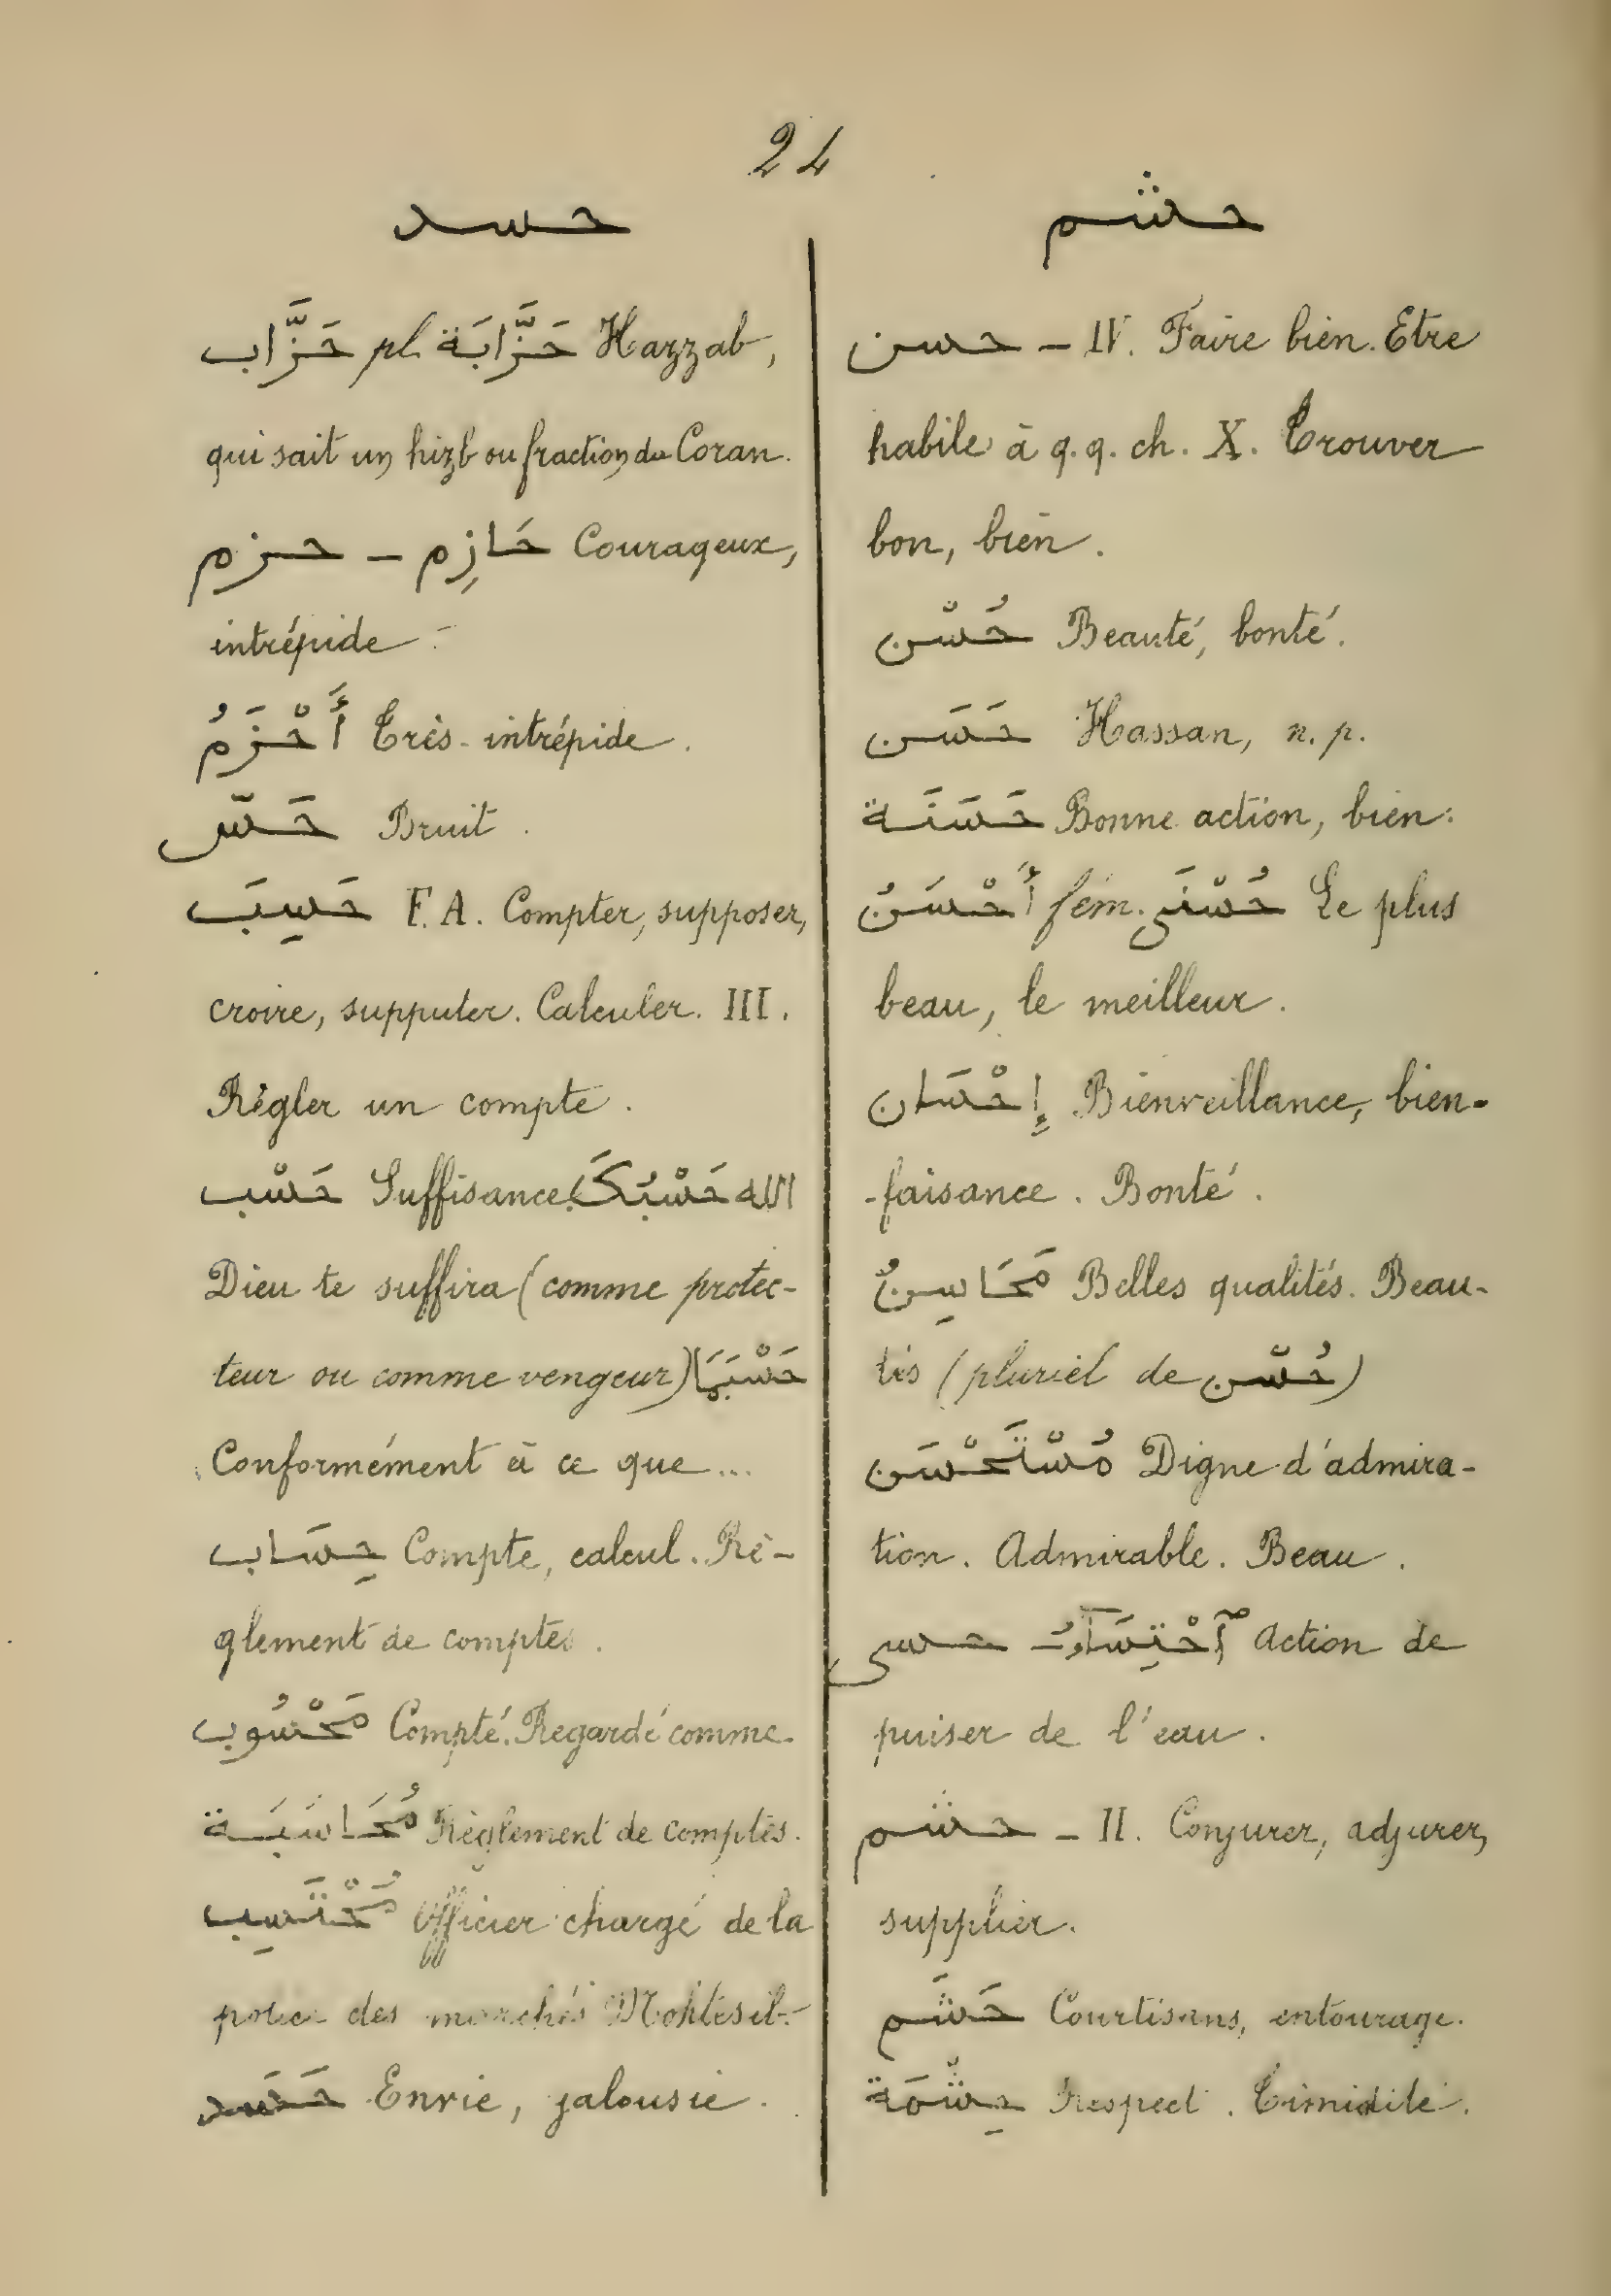 24
حسد
حَزَّاب pl. حَزَّابَة Hazzab,
qui sait un hizb ou fraction du Coran.
حزم — حَازِم Courageux,
intrépide.
أَحْزَمُ Très-intrépide.
حَسّ Bruit.
حَسِبَ F. A. Compter, supposer,
croire, supputer. Calculer. III.
Régler un compte.
حَسْب Suffisance. الله حَسْبُكَ
Dieu te suffira (comme protec-
teur ou comme vengeur) حَسْبَمَا
Conformément à ce que...
حِسَاب Compte, calcul. Rè-
glement de comptes.
مَحْسُوب Compté. Regardé comme.
مُحَاسَبَة Règlement de comptes.
مُحْتَسِب Officier chargé de la
police des marchés Mohtesib.
حَسَد Envie, jalousie.
حشم
حسن — IV. Faire bien. Etre
habile à q.q. ch. X. Trouver
bon, bien.
حُسْن Beauté, bonté.
حَسَن Hassan, n. p.
حَسَنَة Bonne action, bien.
أَحْسَنُ fém. حُسْنَى Le plus
beau, le meilleur.
إِحْسَان Bienveillance, bien-
-faisance. Bonté.
مَحَاسِنُ Belles qualités. Beau-
tés (pluriel de حُسْن)
مُسْتَحْسَن Digne d'admira-
tion. Admirable. Beau.
حسى Action de
puiser de l'eau.
حشم — II. Conjurer, adjurer,
supplier.
حَشَم Courtisans, entourage.
حِشْمَة Respect. Timidité.